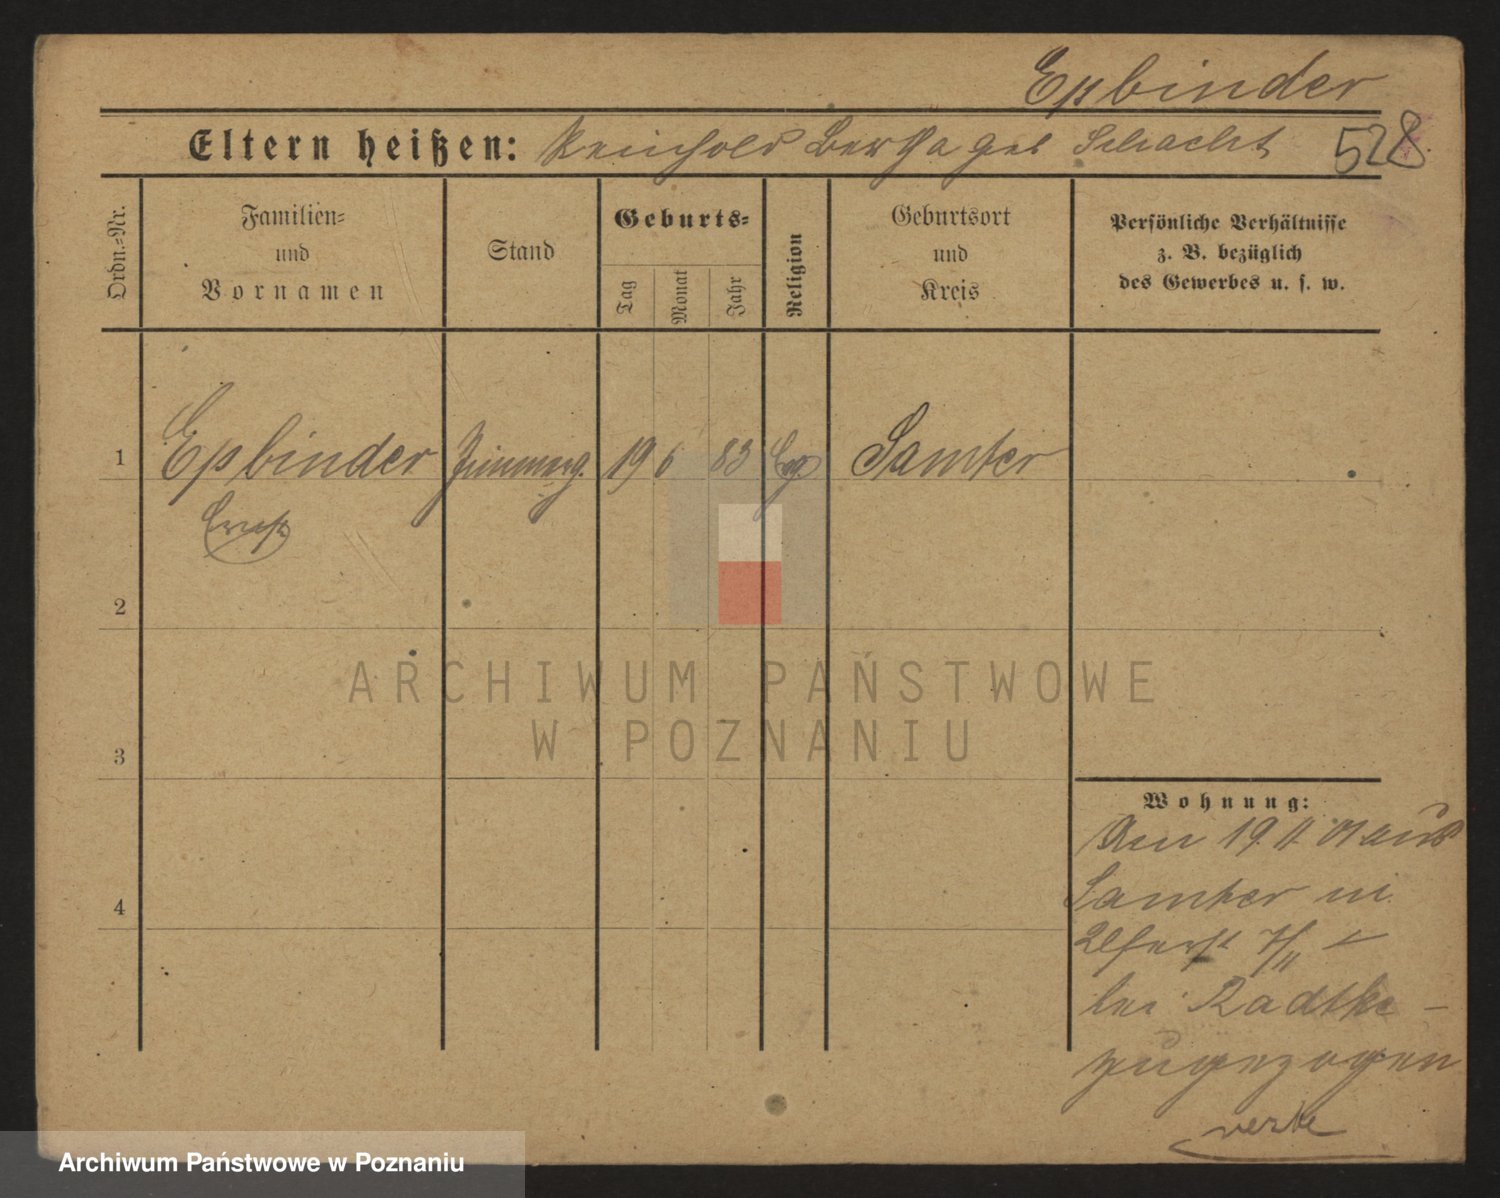 Epbinder
Eltern heißen: Reinhold Bertha geb Schacht 528
Ordn.=Nr.
Familien=
und
Vornamen
Stand
Geburts=
Tag
Monat
Jahr
Religion
Geburtsort
und
Kreis
Persönliche Verhältnisse
z. B. bezüglich
des Gewerbes u. s. w.
1 Epbinder 19 6 83 Eg Samter
Ernst
2
ARCHIWUM PAŃSTWOWE
W POZNANIU
3
Wohnung:
Am 19. 11. 01 aus
Samter in
4
bei Radtke -
zugezogen
verte
Archiwum Państwowe w Poznaniu